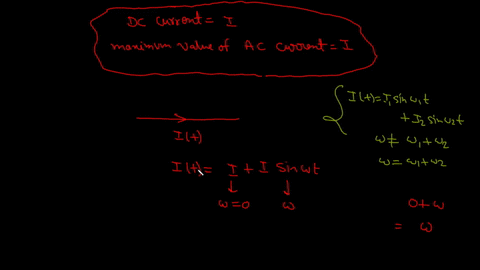 DC current = I
maximum value of AC current = I
I(t) = I₁ sin ω₁t
+ I₂ sin ω₂t
ω ≠ ω₁+ω₂
ω = ω₁+ω₂
I(t)
I(t) = I + I sin ωt
ω=0 ω
0+ω
= ω